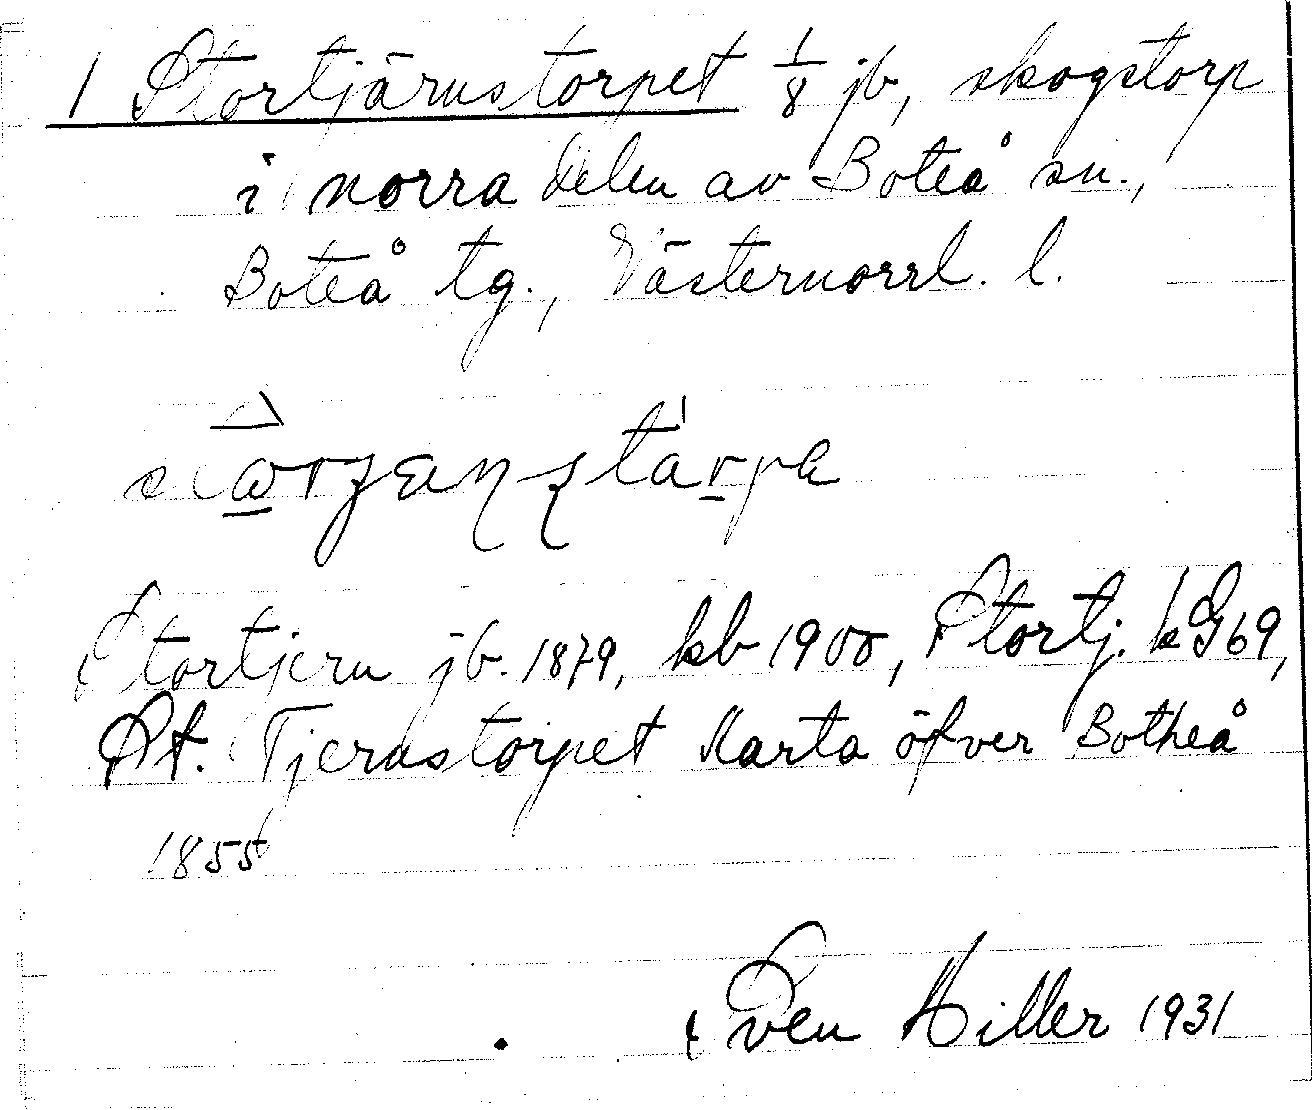 1 Stortjärnstorpet 1/8 jb, skogstorp
i norra delen av Boteå sn.,
Boteå tg., Västernorrl. l.
Stortjern jb. 1879, kb 1900, Stortj. k G 69,
St. Tjernstorpet Karta öfver Botheå
1855
Sven Hiller 1931